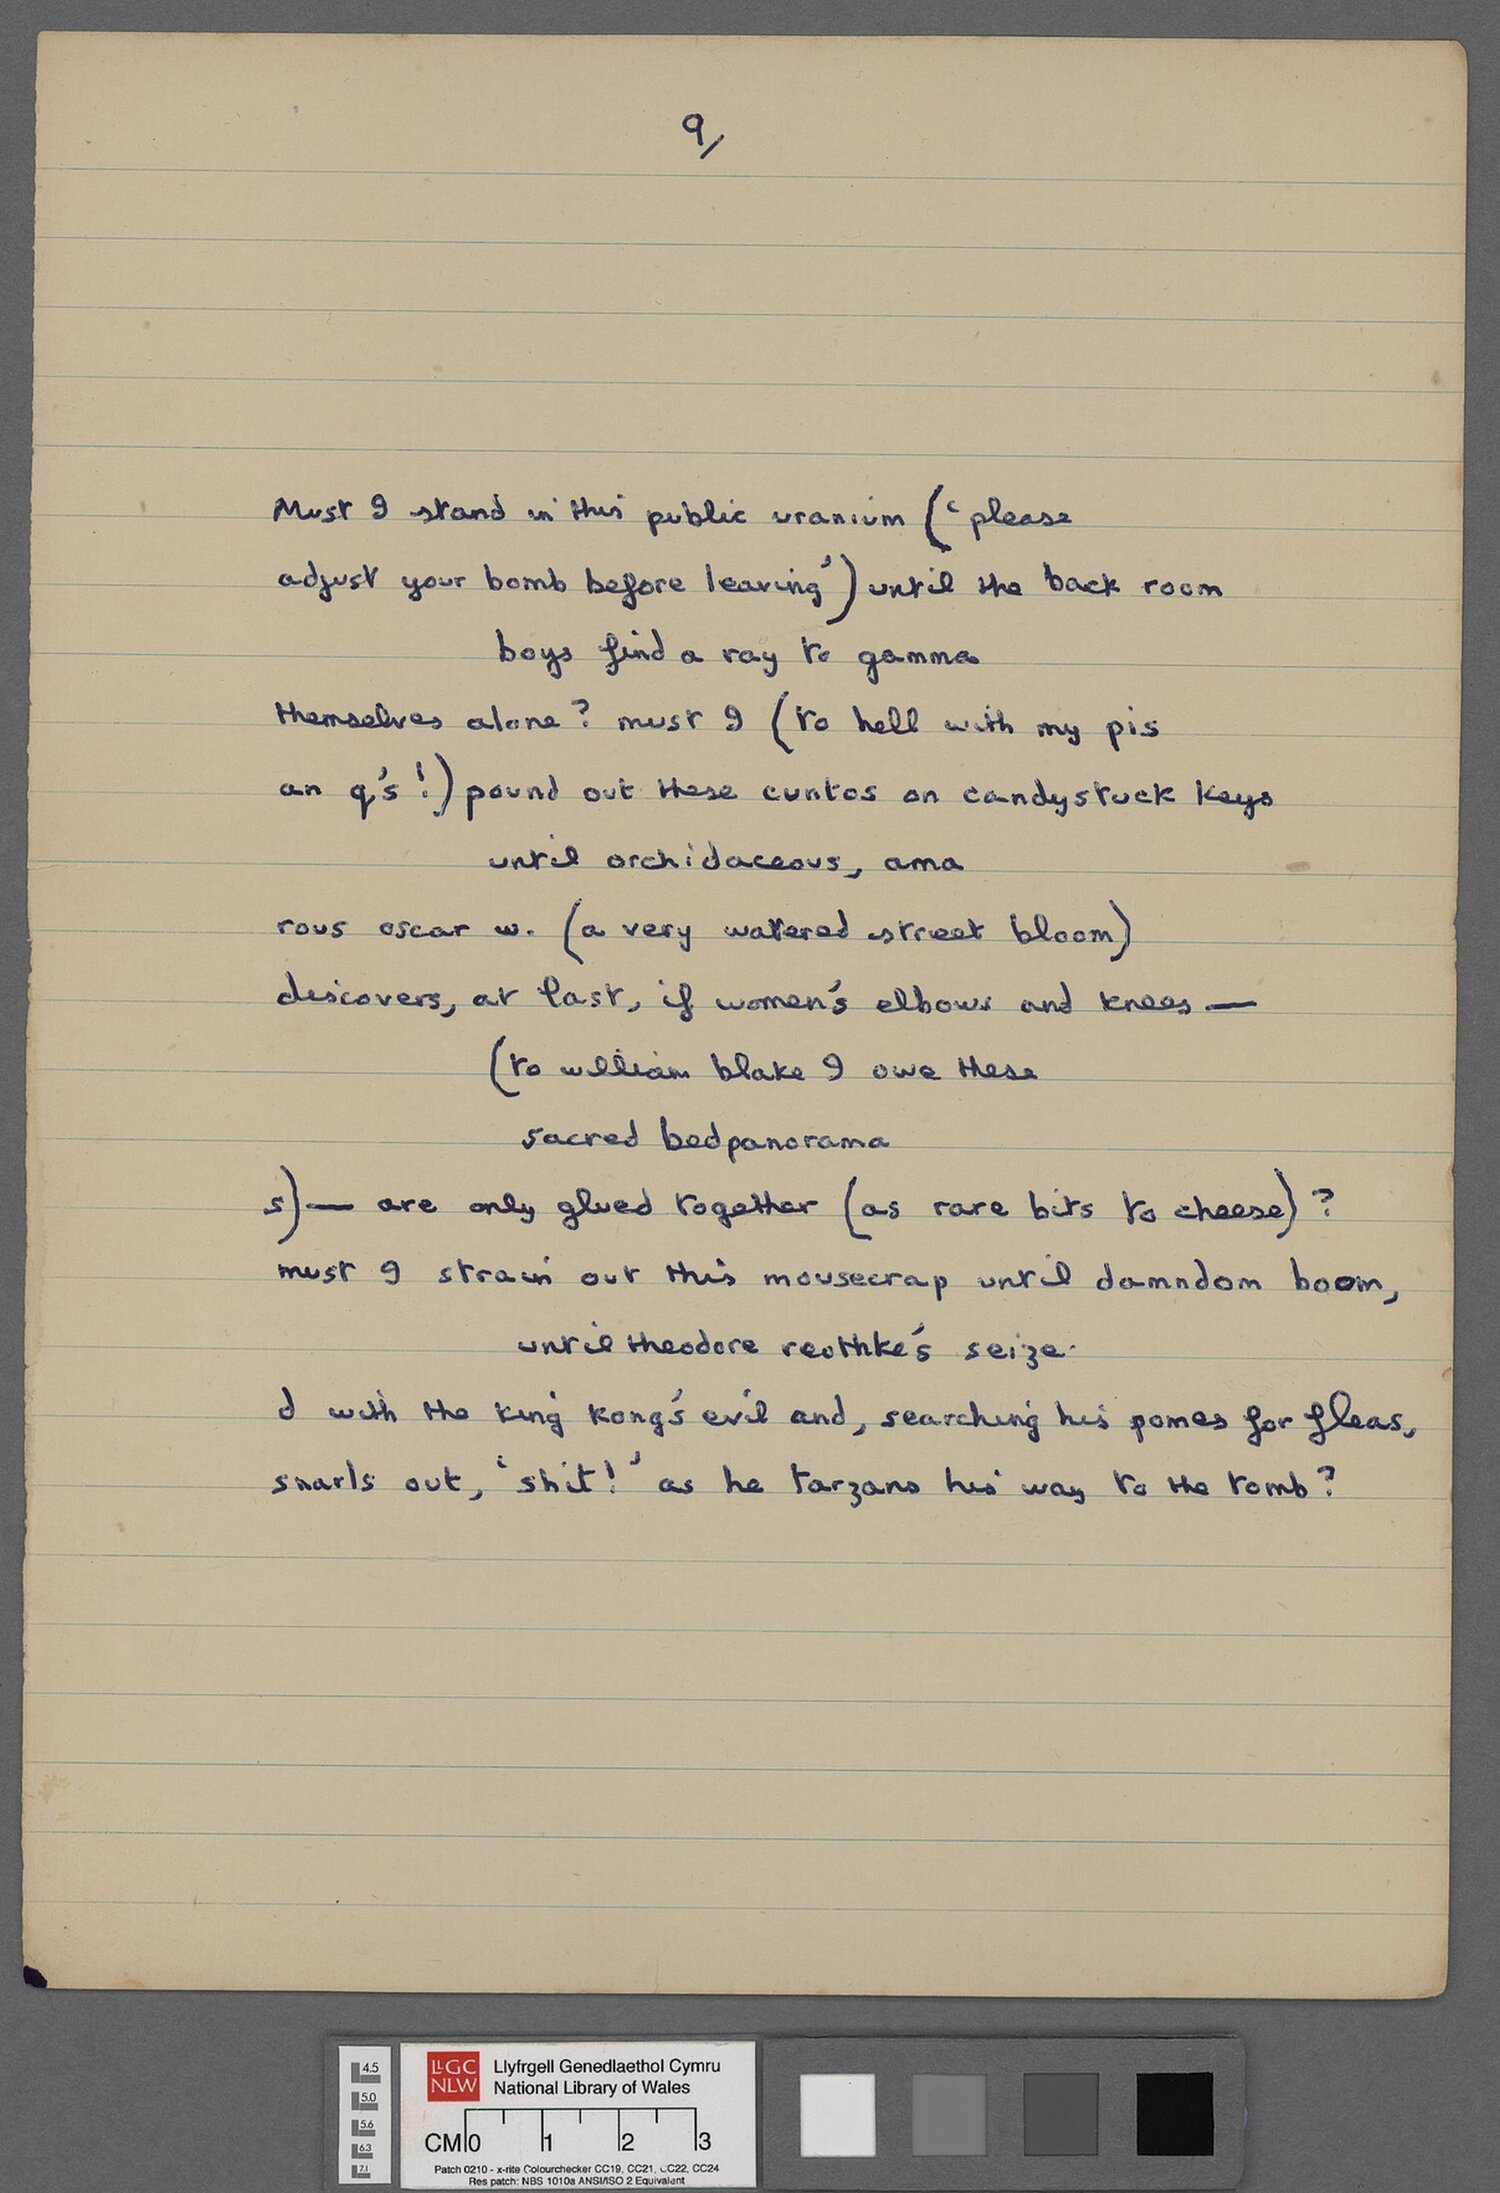 9/
Must I stand in this public uranium ('please
adjust your bomb before leaving') until the back room
boys find a ray to gamma
themselves alone? must I (to hell with my pis
an q's!) pound out these cuntos on candystuck keys
until orchidaceous, ama
rous oscar w. (a very watered street bloom)
discovers, at last, if women's elbows and knees —
(to william blake I owe these
sacred bedpanorama
s) — are only glued together (as rare bits to cheese)?
must I strain out this mousecrap until damndom boom,
until theodore reothke's seize-
d with the king kong's evil and, searching his pomes for fleas,
snarls out, 'shit!' as he tarzans his way to the tomb?
4.5
5.0
5.6
6.3
7.1
LLGC
NLW
Llyfrgell Genedlaethol Cymru
National Library of Wales
CM 0 1 2 3
Patch 0210 - x-rite Colourchecker CC19, CC21, CC22, CC24
Res patch: NBS 1010a ANSI/ISO 2 Equivalent